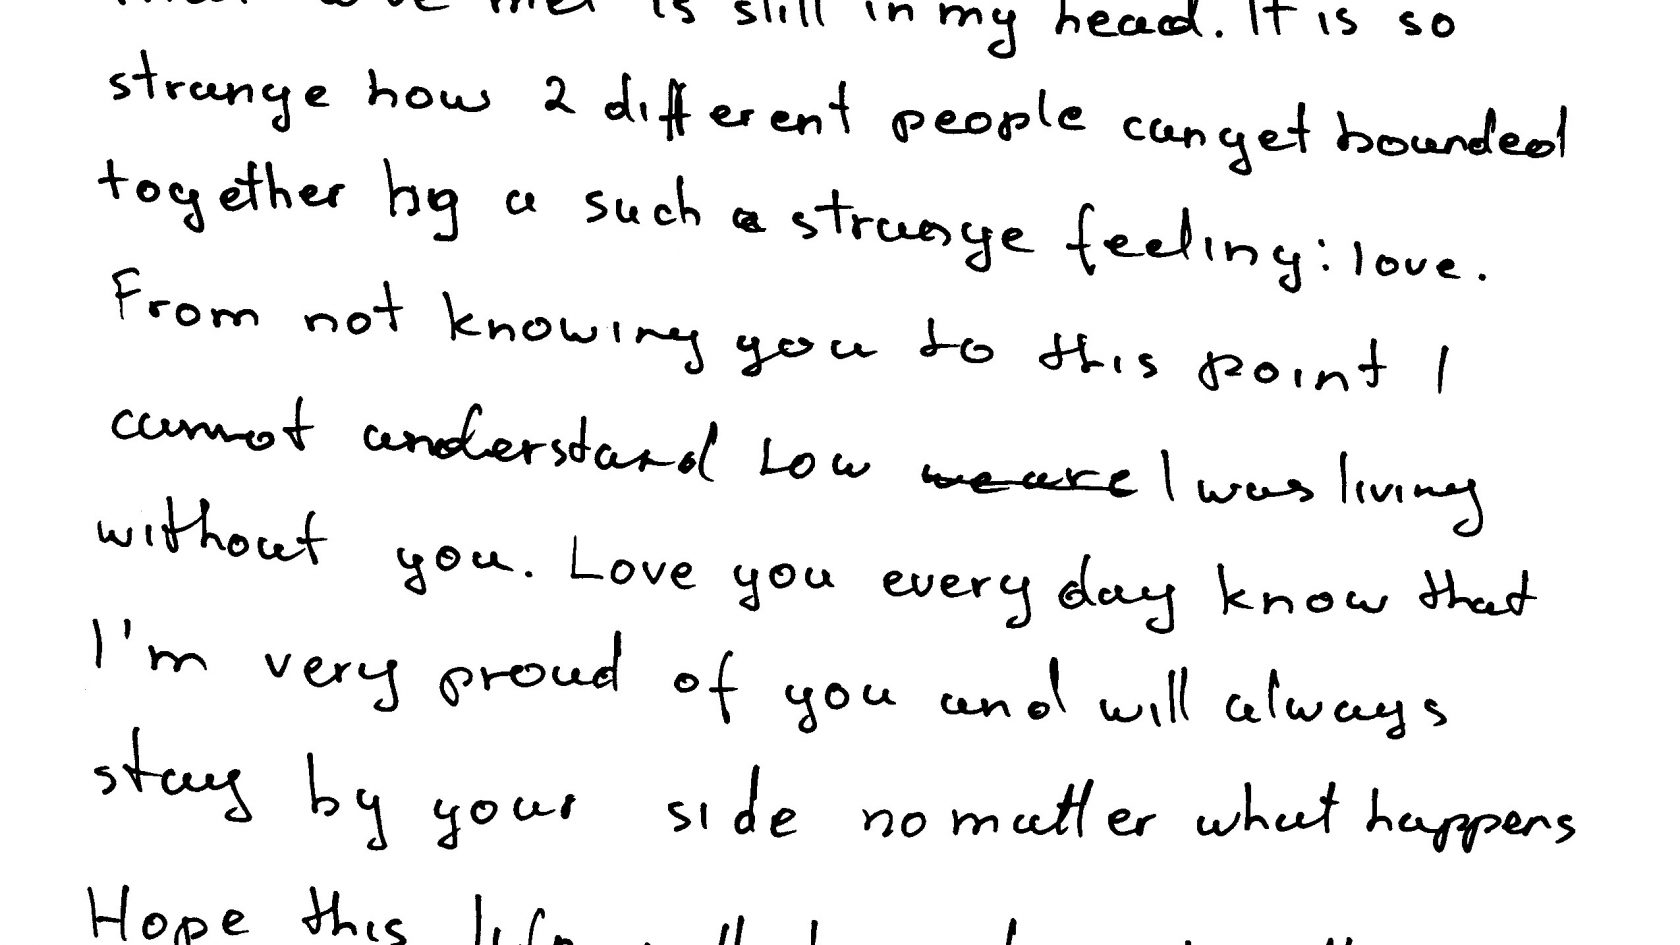 that we met is still in my head. It is so
strange how 2 different people can get bounded
together by a such a strange feeling: love.
From not knowing you to this point I
cannot understand how we are I was living
without you. Love you every day know that
I'm very proud of you and will always
stay by your side no matter what happens
Hope this life